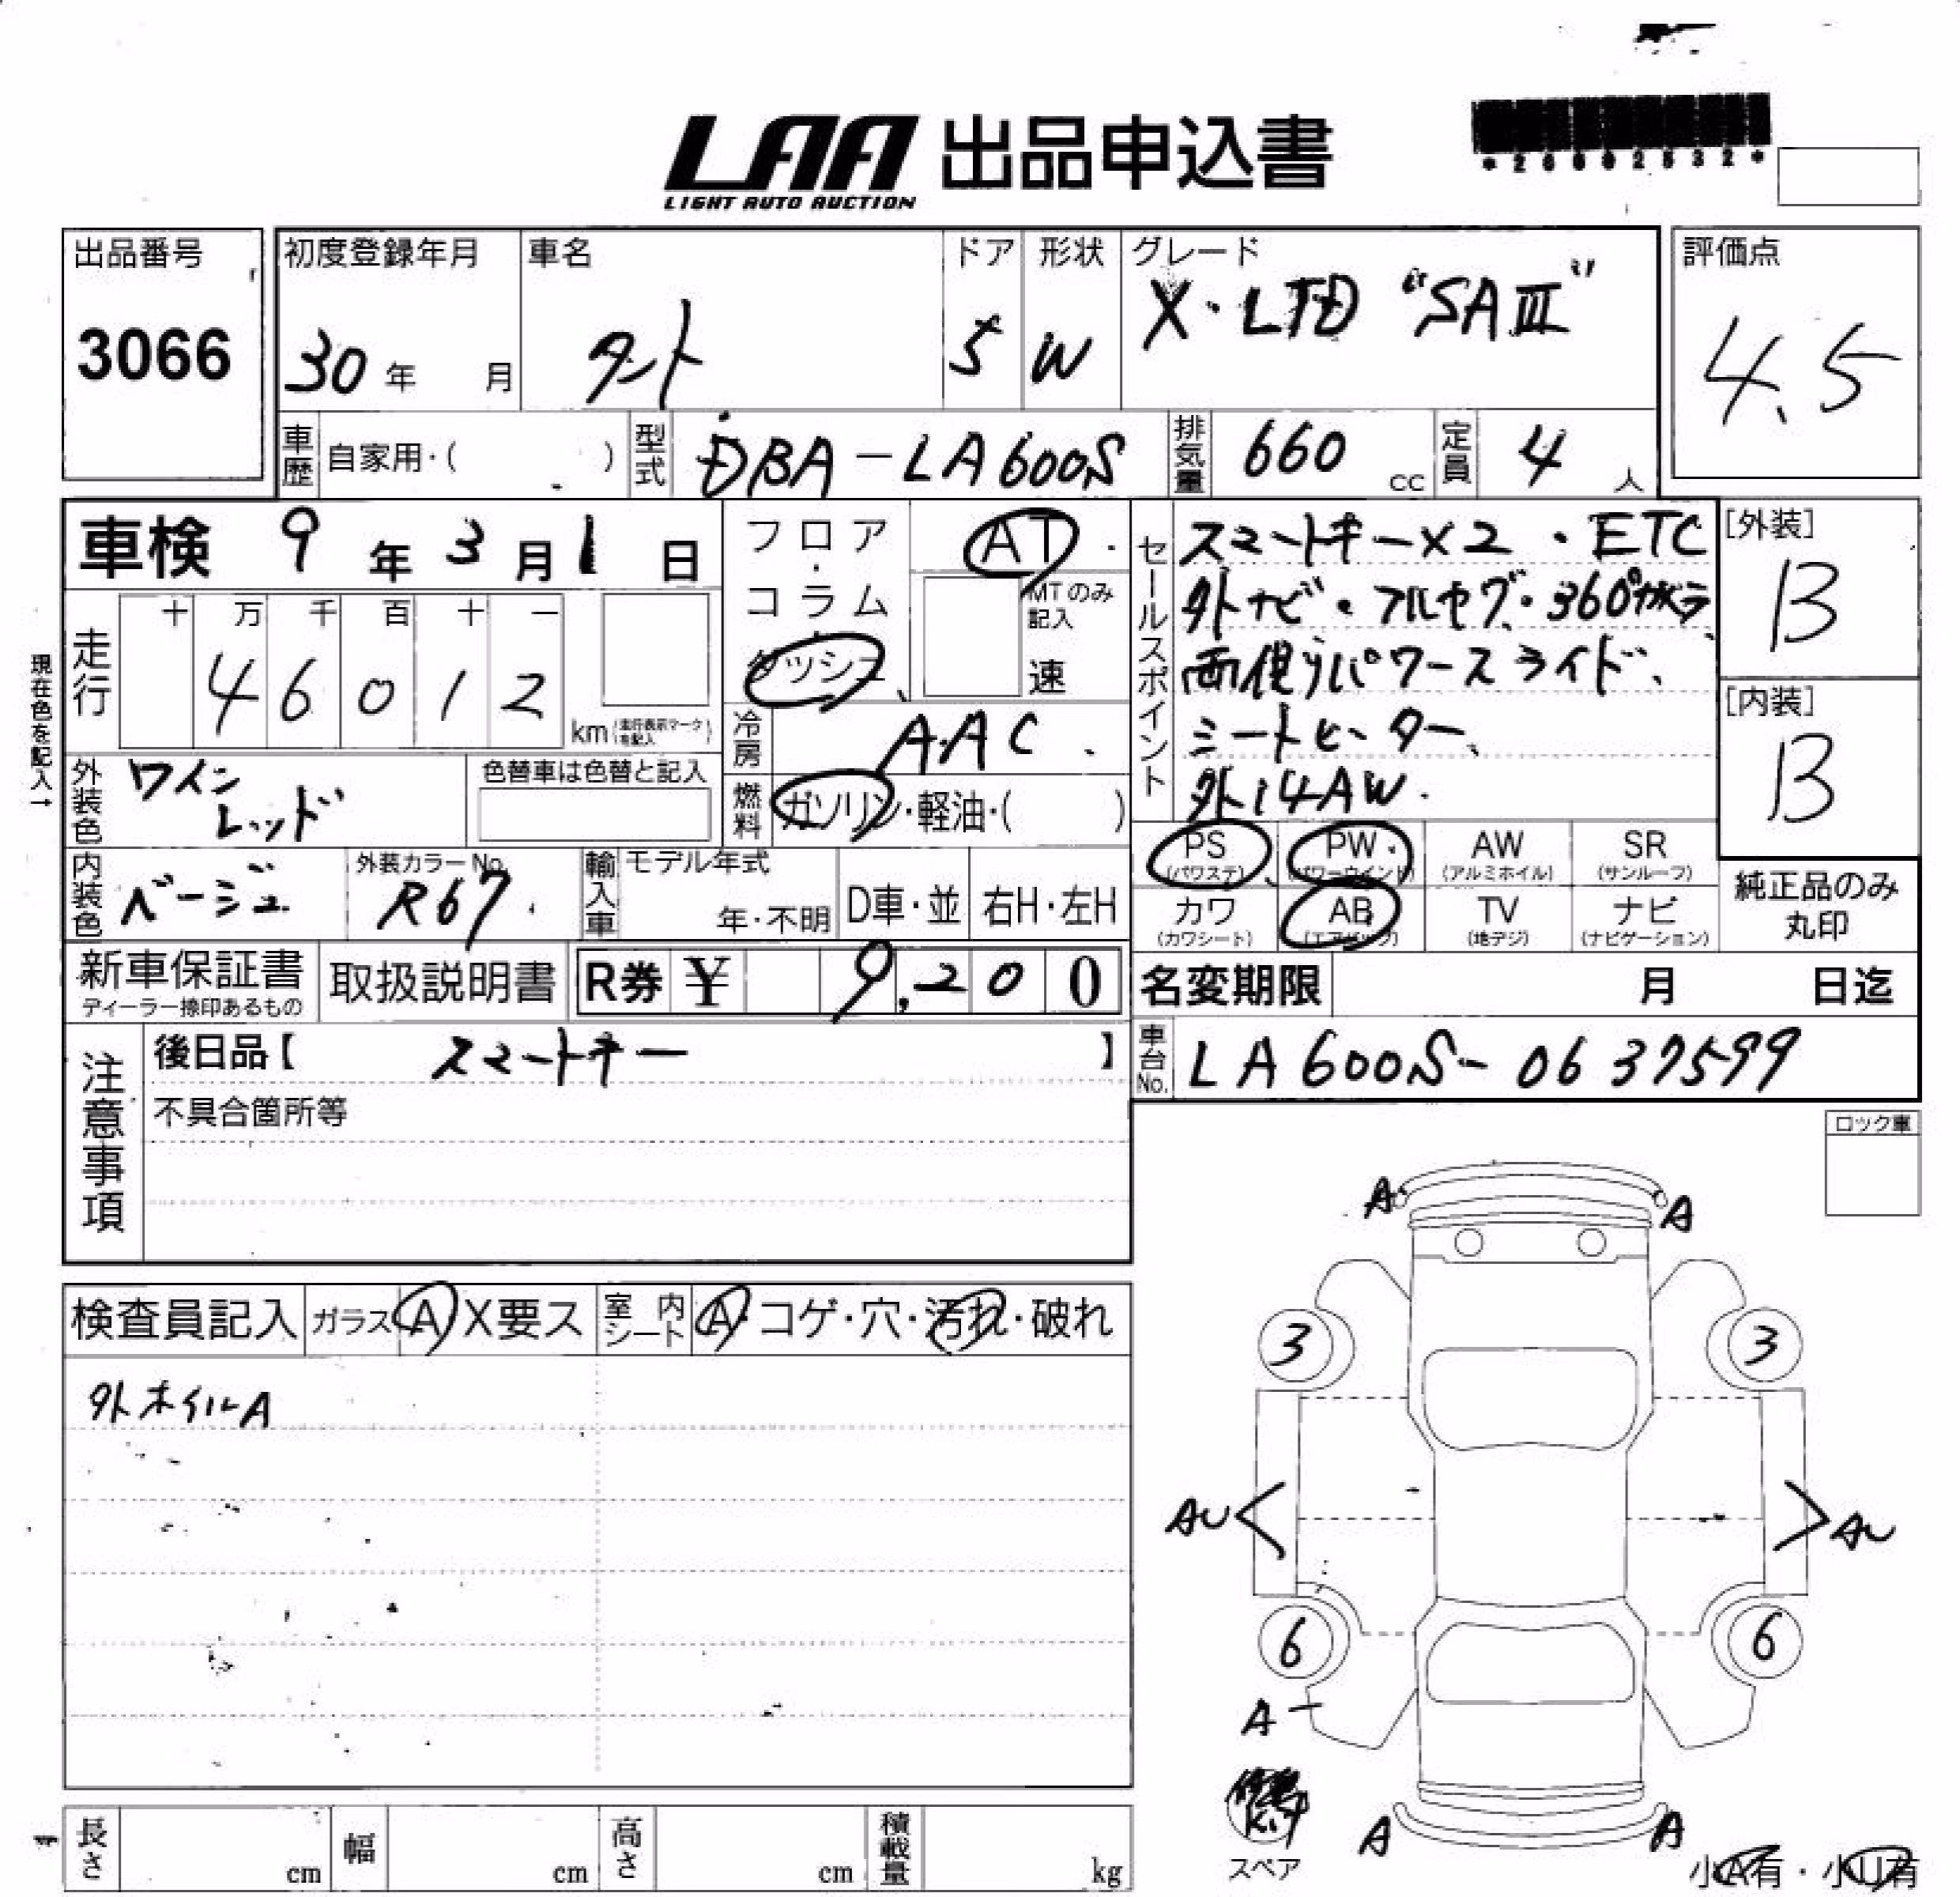 LAA 出品申込書
LIGHT AUTO AUCTION
出品番号
3066
初度登録年月
30年 月
車名
タント
ドア
5
形状
W
グレード
X・LTD "SAⅢ"
評価点
4.5
車歴 自家用・( )
型式 DBA-LA600S
排気量 660 cc
定員 4 人
車検 9年3月1日
フロア・コラム・ダッシュ
AT
MTのみ記入
速
走行
十 万 千 百 十 一
46012
km(走行表示マークを記入)
現在色を記入→
冷房 AAC
燃料 ガソリン・軽油・( )
外装色 ワインレッド
色替車は色替と記入
内装色 ベージュ
外装カラーNo. R67
輸入車 モデル年式
年・不明
D車・並
右H・左H
セールスポイント
スマートキー×2・ETC
外ナビ・フルセグ・360°カメラ、
両側パワースライド、
シートヒーター、
外14AW.
[外装]
B
[内装]
B
PS (パワステ)
PW (パワーウインド)
AW (アルミホイル)
SR (サンルーフ)
カワ (カワシート)
AB (エアバッグ)
TV (地デジ)
ナビ (ナビゲーション)
純正品のみ
丸印
新車保証書
ディーラー捺印あるもの
取扱説明書
R券 ¥ 9,200
名変期限 月 日迄
注意事項
後日品【 スマートキー 】
不具合箇所等
車台No. LA600S-0637599
ロック車
検査員記入
ガラス A X要ス
室内シート A・コゲ・穴・汚れ・破れ
外ホイルA
A A
3 3
AU AU
6 6
A
スペア
A A
小A有・小U有
長さ cm
幅 cm
高さ cm
積載量 kg